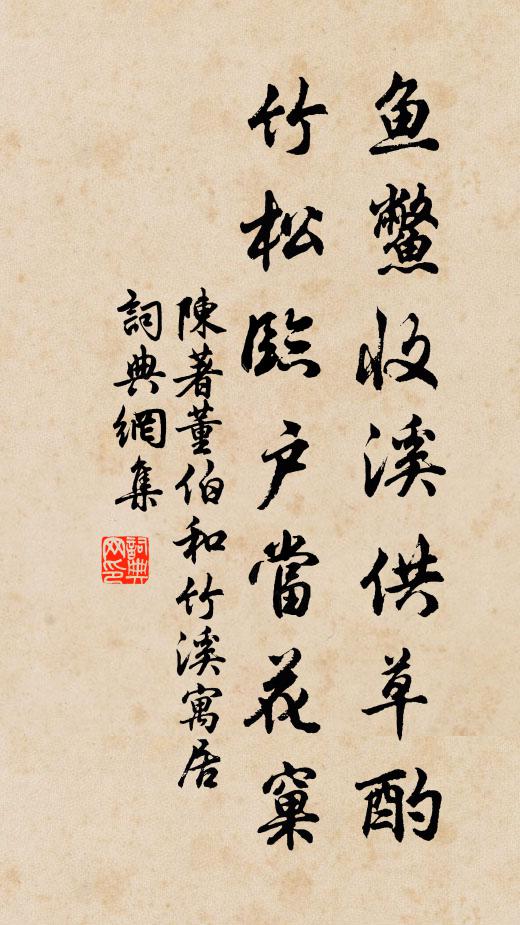 鱼鳖收溪供草酌
竹松臨户當花窠
陳著董伯和竹溪寓居
詞典網集
詞典网印